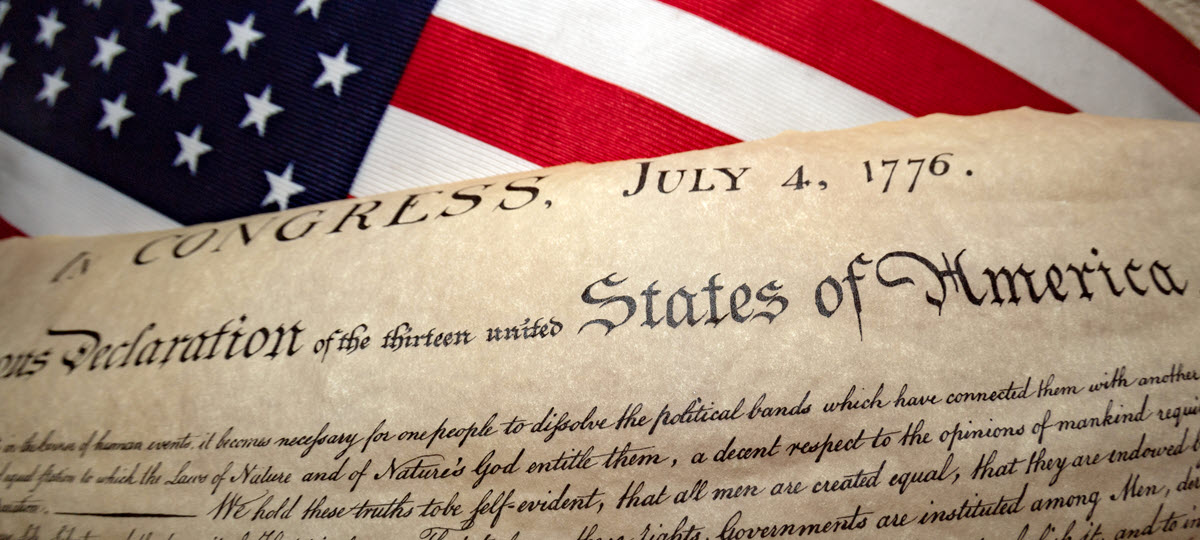 IN CONGRESS, JULY 4, 1776.
Declaration of the thirteen united States of America
in the course of human events, it becomes necessary for one people to dissolve the political bands which have connected them with another
equal station to which the Laws of Nature and of Nature's God entitle them, a decent respect to the opinions of mankind
We hold these truths to be self-evident, that all men are created equal, that they are endowed
Rights, Governments are instituted among Men,
it, and to